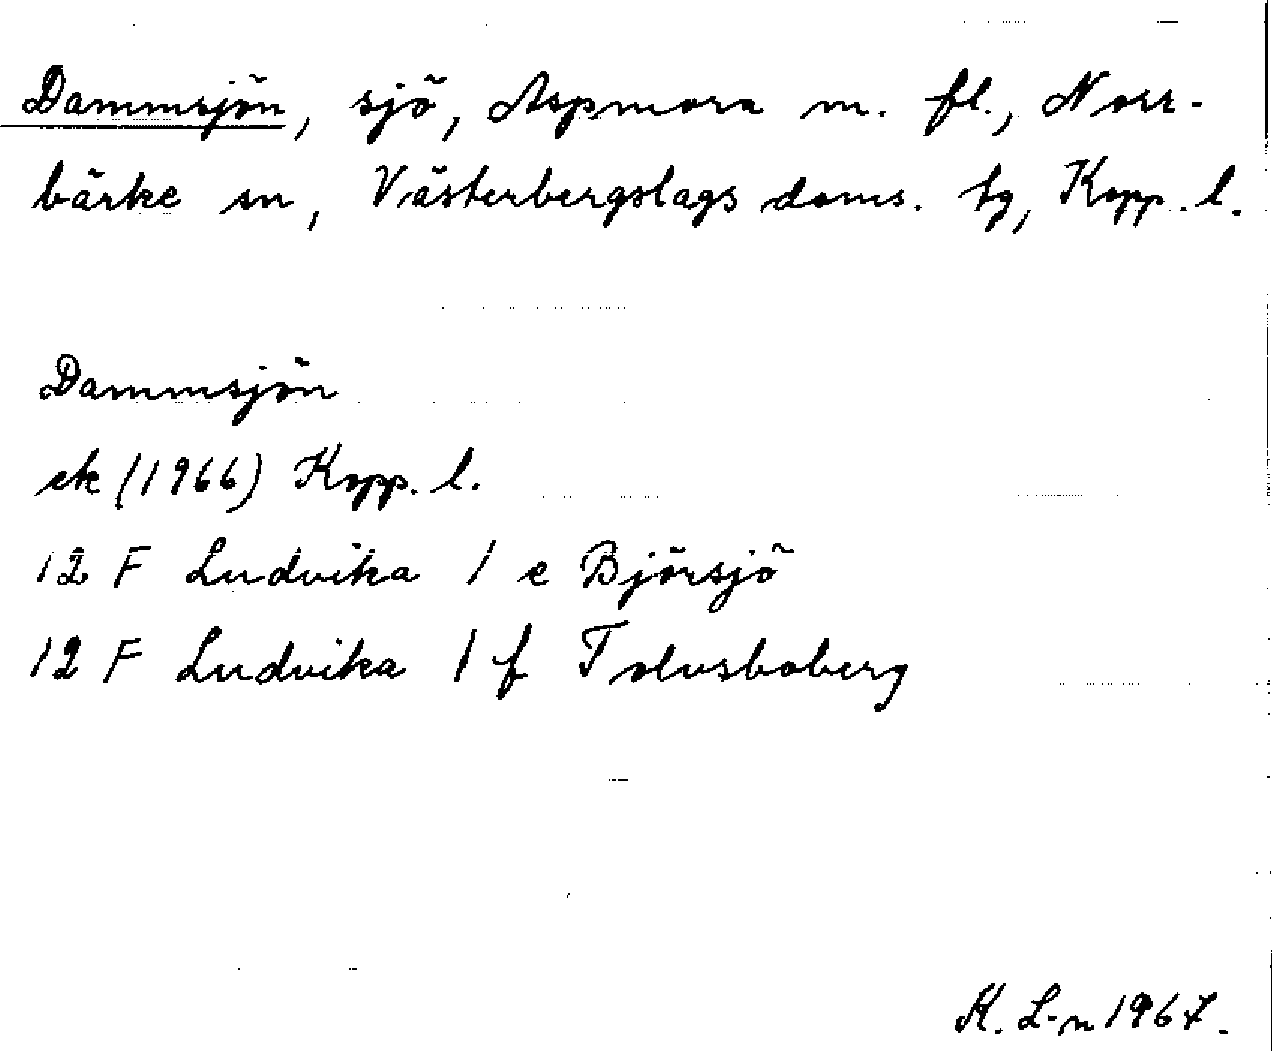 Dammsjön, sjö, Aspmora m. fl., Norr-
bärke sn, Västerbergslags doms. tg, Kopp. l.
Dammsjön
ek (1966) Kopp. l.
12 F Ludvika 1 e Björsjö
12 F Ludvika 1 f Tolvsboberg
K. L-n 1967.